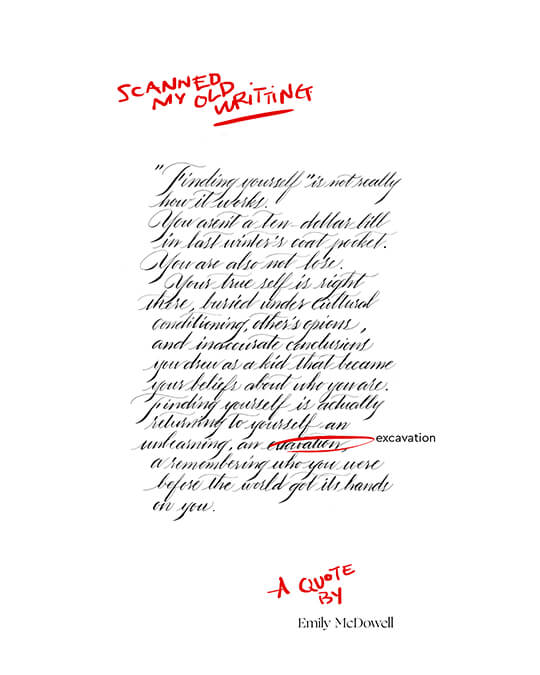 SCANNED
MY OLD
WRITING
"Finding yourself" is not really
how it works.
You aren't a ten-dollar bill
in last winter's coat pocket.
You are also not lose.
Your true self is right
there, buried under cultural
conditioning, other's opions,
and inaccurate conclusions
you drew as a kid that became
your beliefs about who you are.
Finding yourself is actually
returning to yourself an
unlearning, an excavation,
excavation
a remembering who you were
before the world got its hands
on you.
A QUOTE
BY
Emily McDowell